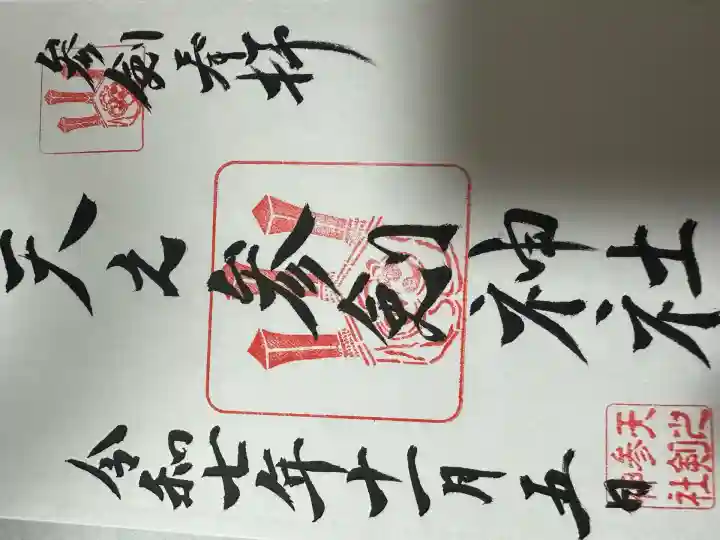 参剣奉拝
天之参剣神社
令和七年十一月五日
天之
参剣
神社